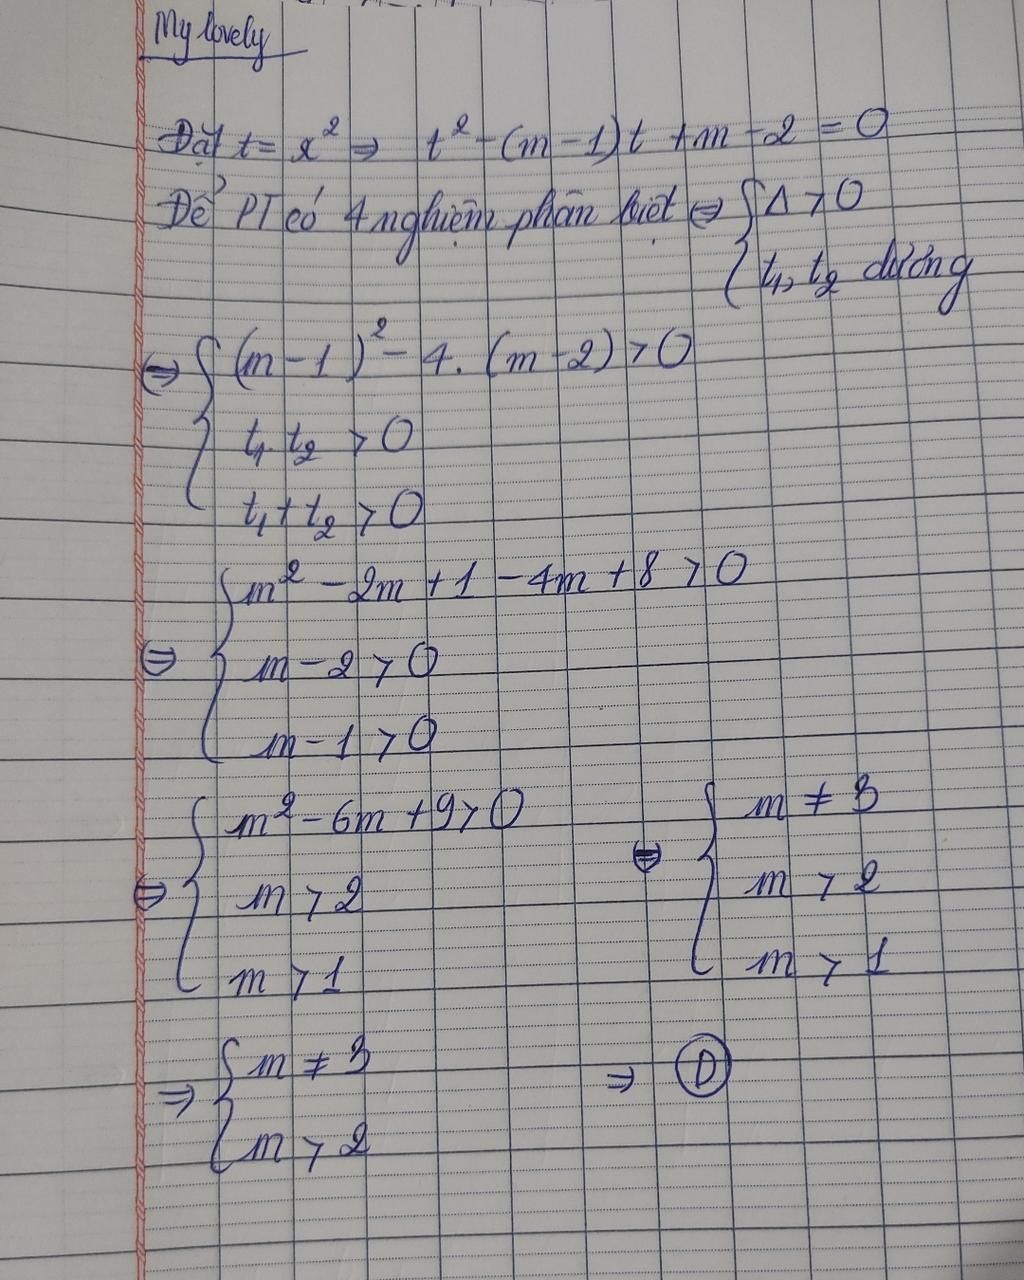 My lovely
Đặt t = x² ⇒ t² - (m - 1)t + m - 2 = 0
Để PT có 4 nghiệm phân biệt ⇔ { Δ > 0
t₁, t₂ dương
⇔ { (m - 1)² - 4. (m - 2) > 0
t₁. t₂ > 0
t₁ + t₂ > 0
⇔ { m² - 2m + 1 - 4m + 8 > 0
m - 2 > 0
m - 1 > 0
⇔ { m² - 6m + 9 > 0
m > 2
m > 1
⇔ { m ≠ 3
m > 2
m > 1
⇒ { m ≠ 3
m > 2
⇒ D